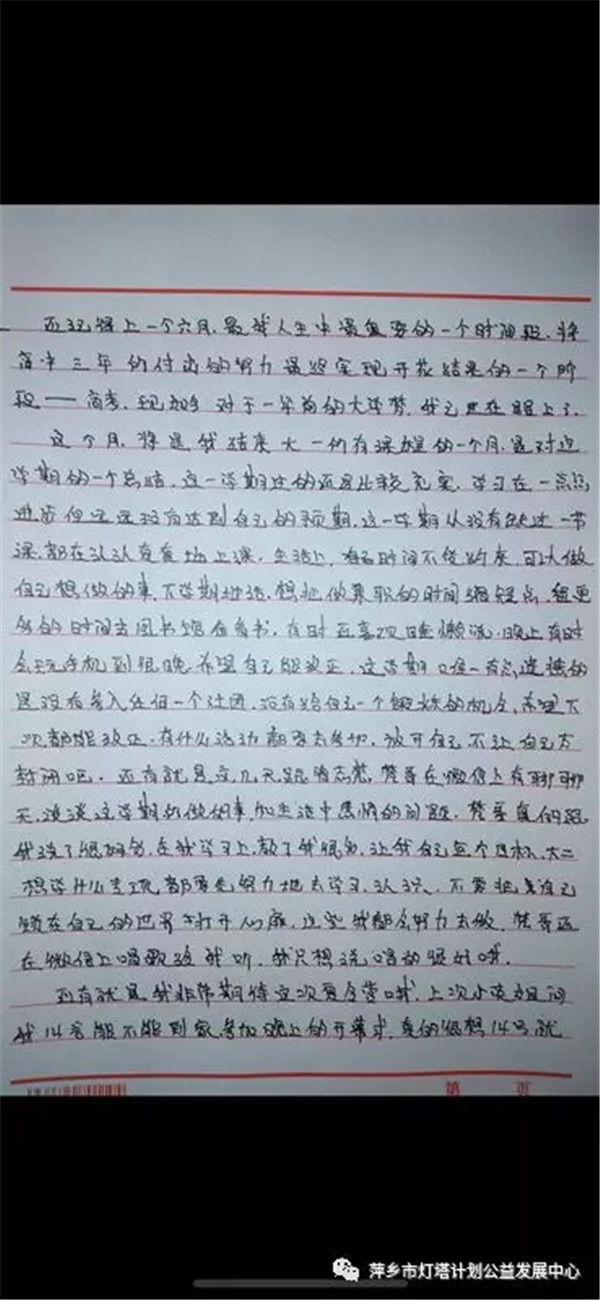 还记得上一个六月，是我人生中最重要的一个时间段，将
高中三年的付出的努力最终实现开花结果的一个阶
段——高考，现如今对于一年前的大学梦，我已走在路上了。
这个月，将是我结束大一所有课程的一个月，是对这
学期的一个总结，这一学期过的还是比较充实，学习在一点点
进步但远远没有达到自己的预期，这一学期从没有缺过一节
课，都在认认真真地上课。生活上，有了时间不受约束，可以做
自己想做的事，下学期
想把做兼职的时间缩短点，
多的时间去图书馆看看书，有时还喜欢
晚上有时
会玩手机到很晚，希望自己能改正。这学期唯一有点遗憾的
是没有参入任何一个社团，没有给自己一个锻炼的机会，希望下
次都能改正，有什么活动都要去参加，放开自己不让自己太
封闭吧。还有就是这几天跟
梵哥在微信上有聊聊
天，谈谈这学期所做的事，和生活中感情的问题，梵哥真的跟
我谈了很多，在我学习上，教了我很多，让我自己定个目标，大二
想学什么
都要先努力地去学习，认识，不要把
自己
锁在自己的世界
打开心扉，这些我都会努力去做，梵哥还
在微信上唱歌给我听，我只想说唱的很好哦。
还有就是我非常期待这次夏令营哦，上次小
姐问
我14号能不能到家参加晚上的开幕式，真的很想14号就
第 页
萍乡市灯塔计划公益发展中心